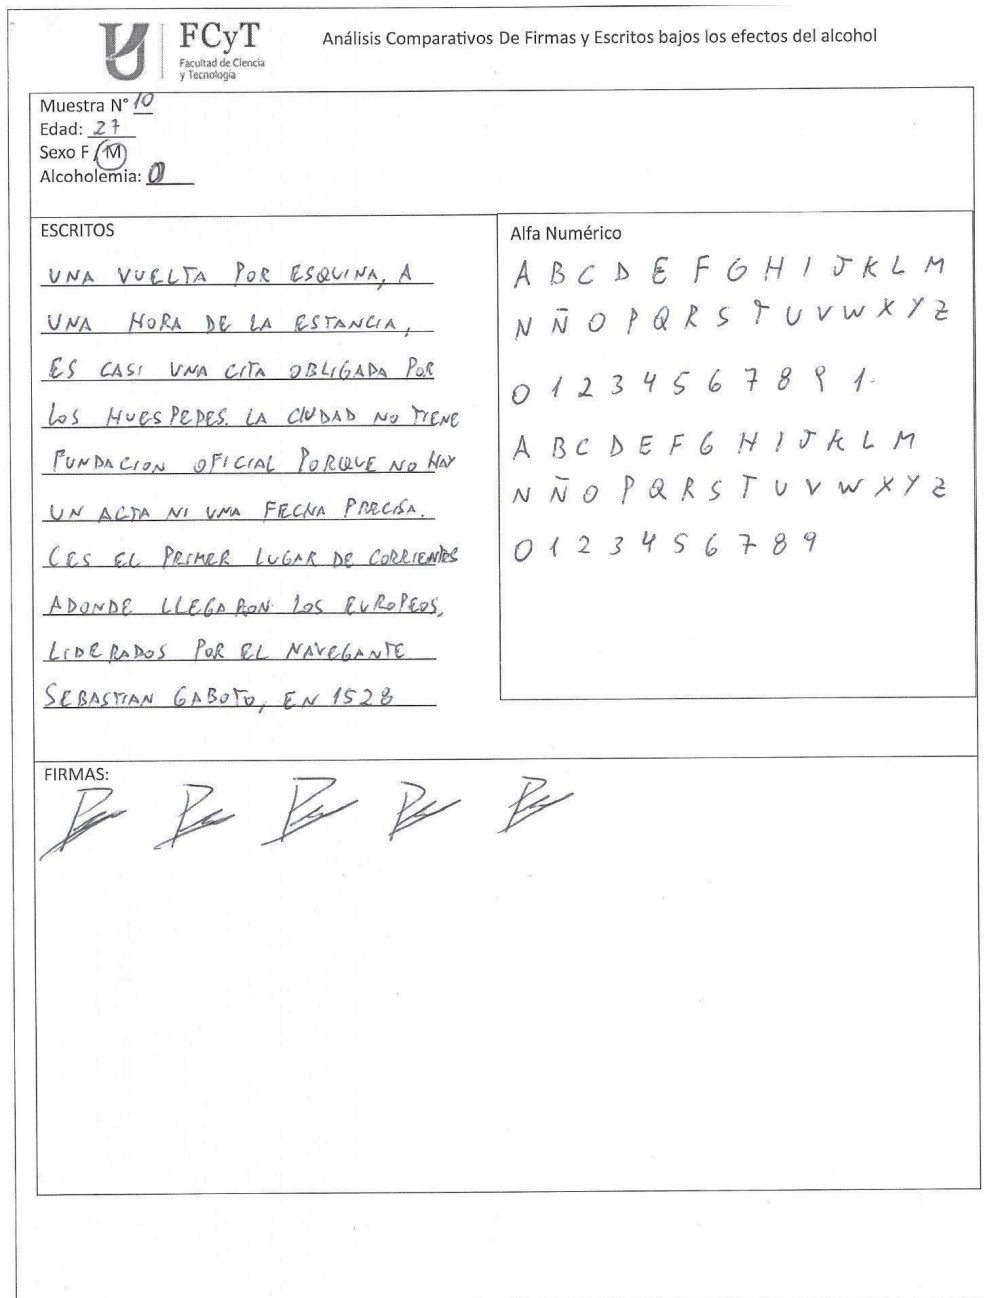 FCyT
Facultad de Ciencia
y Tecnología
Análisis Comparativos De Firmas y Escritos bajos los efectos del alcohol
Muestra N° 10
Edad: 27
Sexo F / M
Alcoholemia: 0
ESCRITOS
UNA VUELTA POR ESQUINA, A
UNA HORA DE LA ESTANCIA,
ES CASI UNA CITA OBLIGADA POR
LOS HUESPEDES. LA CIUDAD NO TIENE
FUNDACION OFICIAL PORQUE NO HAY
UN ACTA NI UNA FECHA PRECISA.
CES EL PRIMER LUGAR DE CORRIENTES
ADONDE LLEGARON LOS EUROPEOS,
LIDERADOS POR EL NAVEGANTE
SEBASTIAN GABOTO, EN 1528
Alfa Numérico
A B C D E F G H I J K L M
N Ñ O P Q R S T U V W X Y Z
0 1 2 3 4 5 6 7 8 9 1.
A B C D E F G H I J K L M
N Ñ O P Q R S T U V W X Y Z
0 1 2 3 4 5 6 7 8 9
FIRMAS: